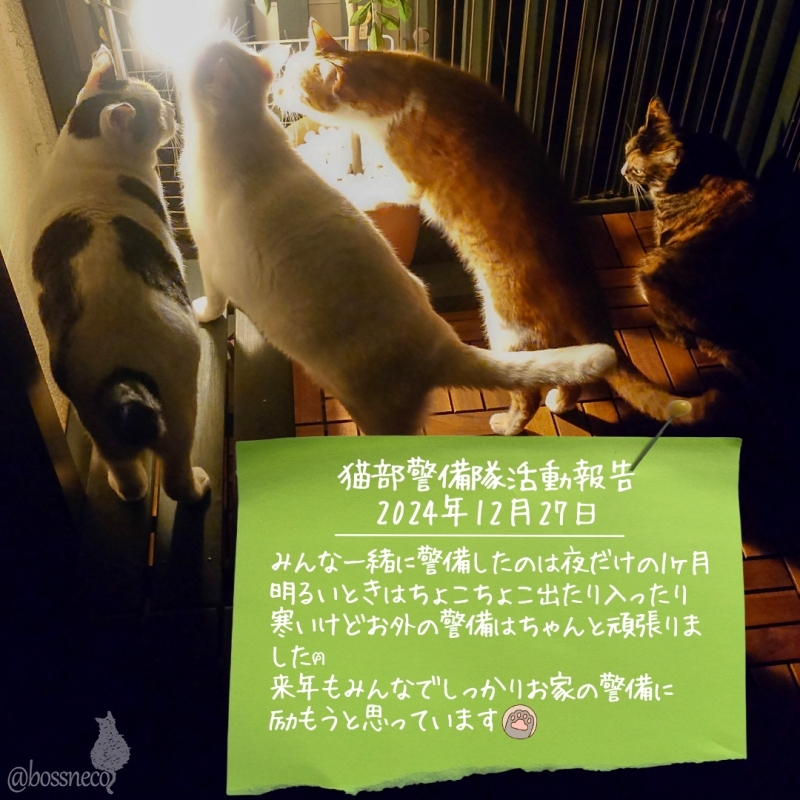 猫部警備隊活動報告
2024年12月27日
みんな一緒に警備したのは夜だけの1ヶ月
明るいときはちょこちょこ出たり入ったり
寒いけどお外の警備はちゃんと頑張りま
した
来年もみんなでしっかりお家の警備に
励もうと思っています
@bossneco